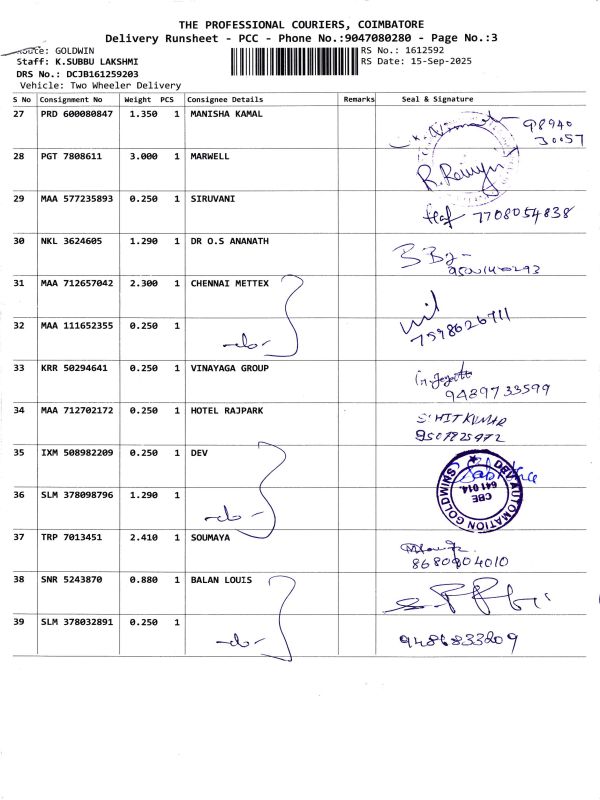 THE PROFESSIONAL COURIERS, COIMBATORE
Delivery Runsheet - PCC - Phone No.:9047080280 - Page No.:3
Route: GOLDWIN
RS No.: 1612592
Staff: K.SUBBU LAKSHMI
RS Date: 15-Sep-2025
DRS No.: DCJB161259203
Vehicle: Two Wheeler Delivery
S No Consignment No Weight PCS Consignee Details Remarks Seal & Signature
27 PRD 600080847 1.350 1 MANISHA KAMAL 98940
30057
28 PGT 7808611 3.000 1 MARWELL
29 MAA 577235893 0.250 1 SIRUVANI 7708054838
30 NKL 3624605 1.290 1 DR O.S ANANATH
31 MAA 712657042 2.300 1 CHENNAI METTEX
32 MAA 111652355 0.250 1 -do- 7598626711
33 KRR 50294641 0.250 1 VINAYAGA GROUP
9489733599
34 MAA 712702172 0.250 1 HOTEL RAJPARK
35 IXM 508982209 0.250 1 DEV
DEV AUTOMATION GOLDWINS
CBE
641 014.
36 SLM 378098796 1.290 1 -do-
37 TRP 7013451 2.410 1 SOUMAYA
8680904010
38 SNR 5243870 0.880 1 BALAN LOUIS
39 SLM 378032891 0.250 1 -do- 9486833209